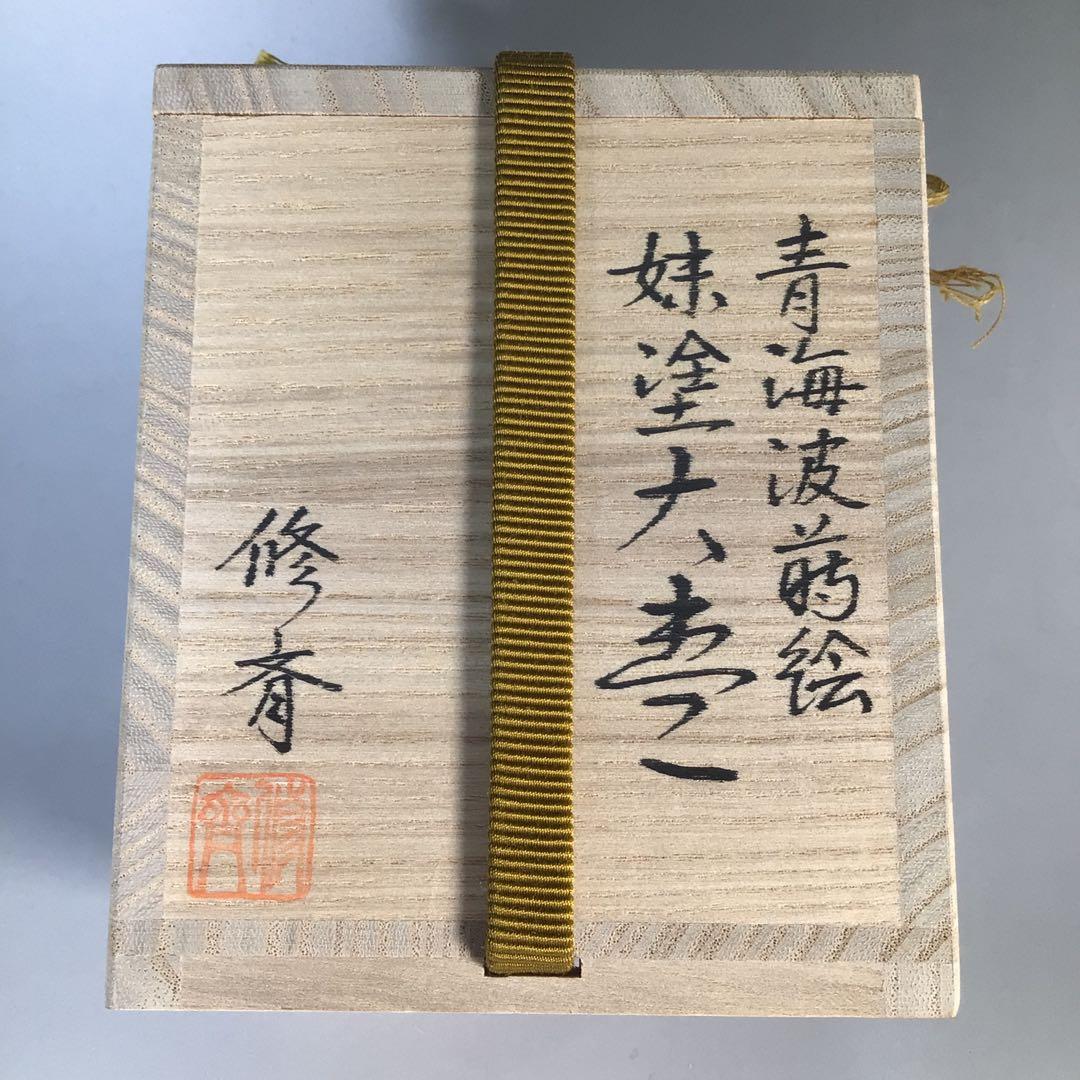 青海波蒔絵
妹塗大棗
修斎